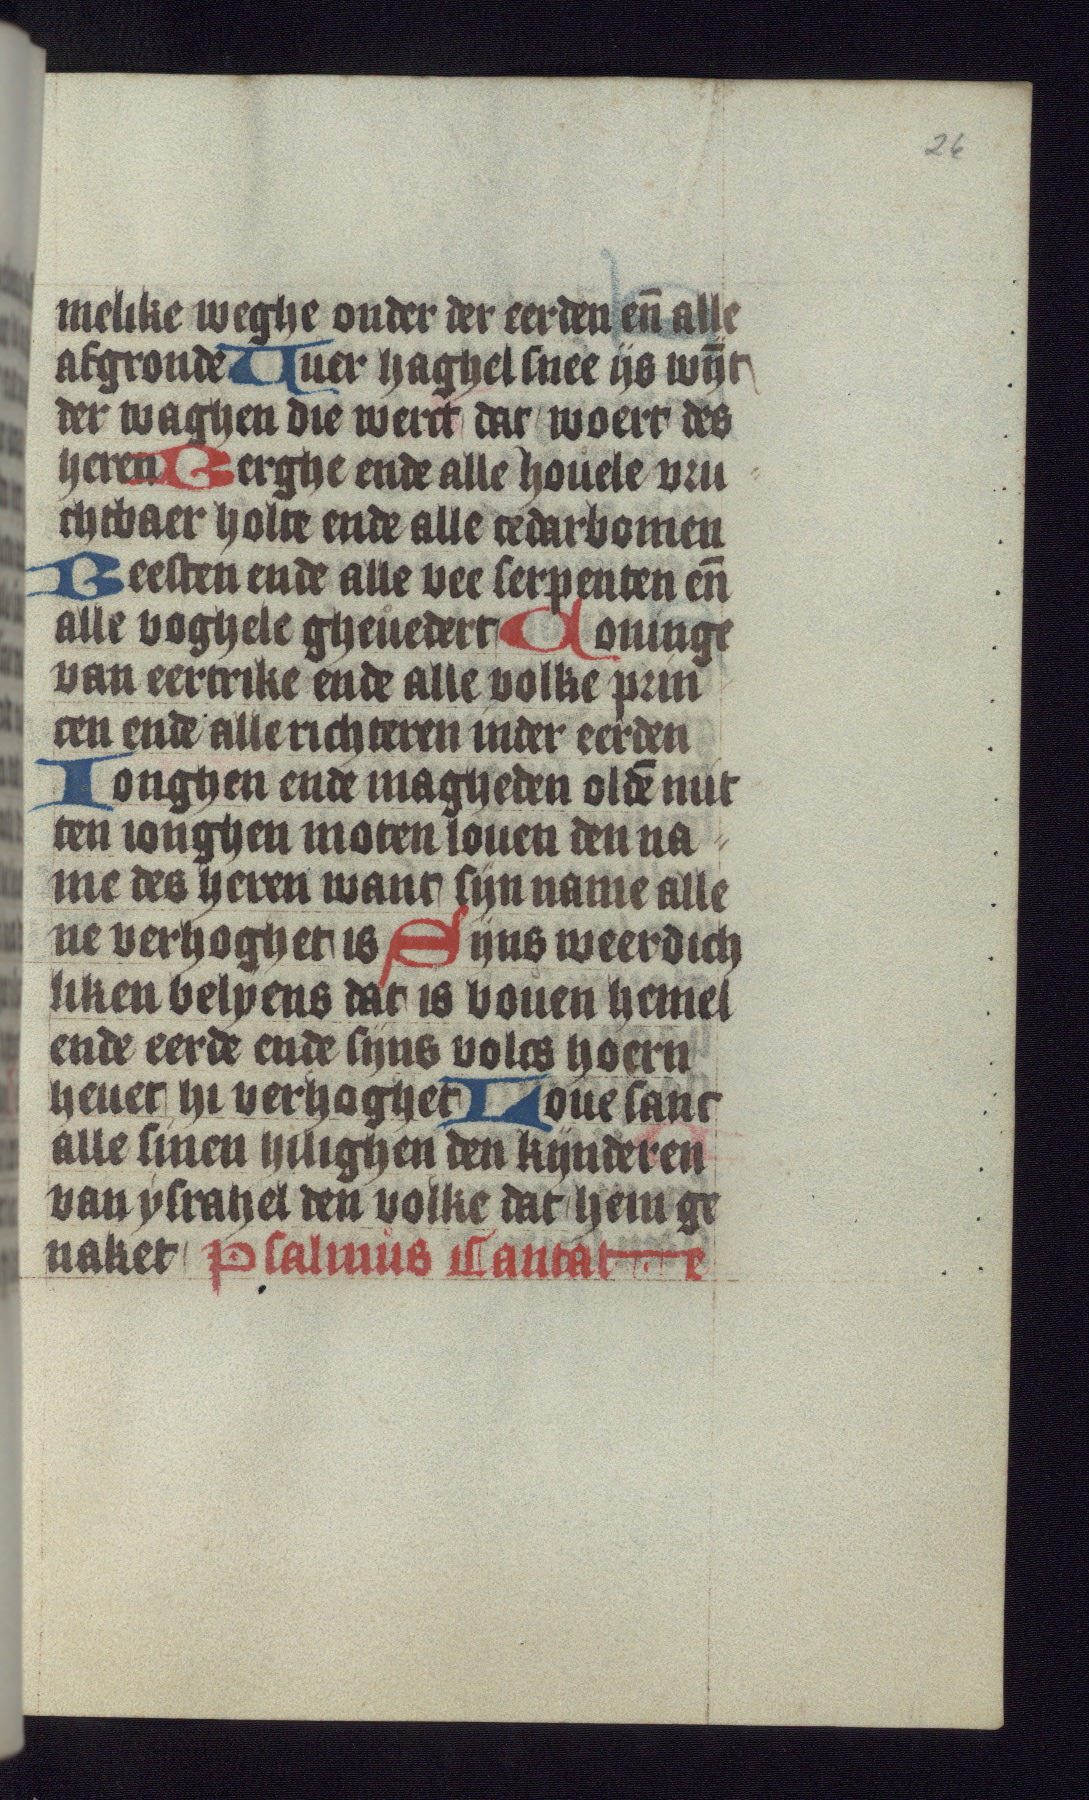 26
melike weghe onder der eerden en̄ alle
afgronde Uuer haghel snee ijs wn̄t
der waghen die werct dat woert des
heren Berghe ende alle houele vru
chtbaer holte ende alle cedarbomen
Beesten ende alle vee serpenten en̄
alle voghele gheuedert Coninge
van eertrike ende alle volke prin
cen ende alle richteren inder eerden
Ionghen ende magheden oldē mit
ten ionghen moten louen den na
me des heren want sijn name alle
ne verhoghet is Sijns weerdich
liken belyens dat is bouen hemel
ende eerde ende sijns volcs hoern
heuet hi verhoghet Loue sanc
alle sinen hilighen den kijnderen
van ysrahel den volke dat hem ge
naket Psalmus Cantate